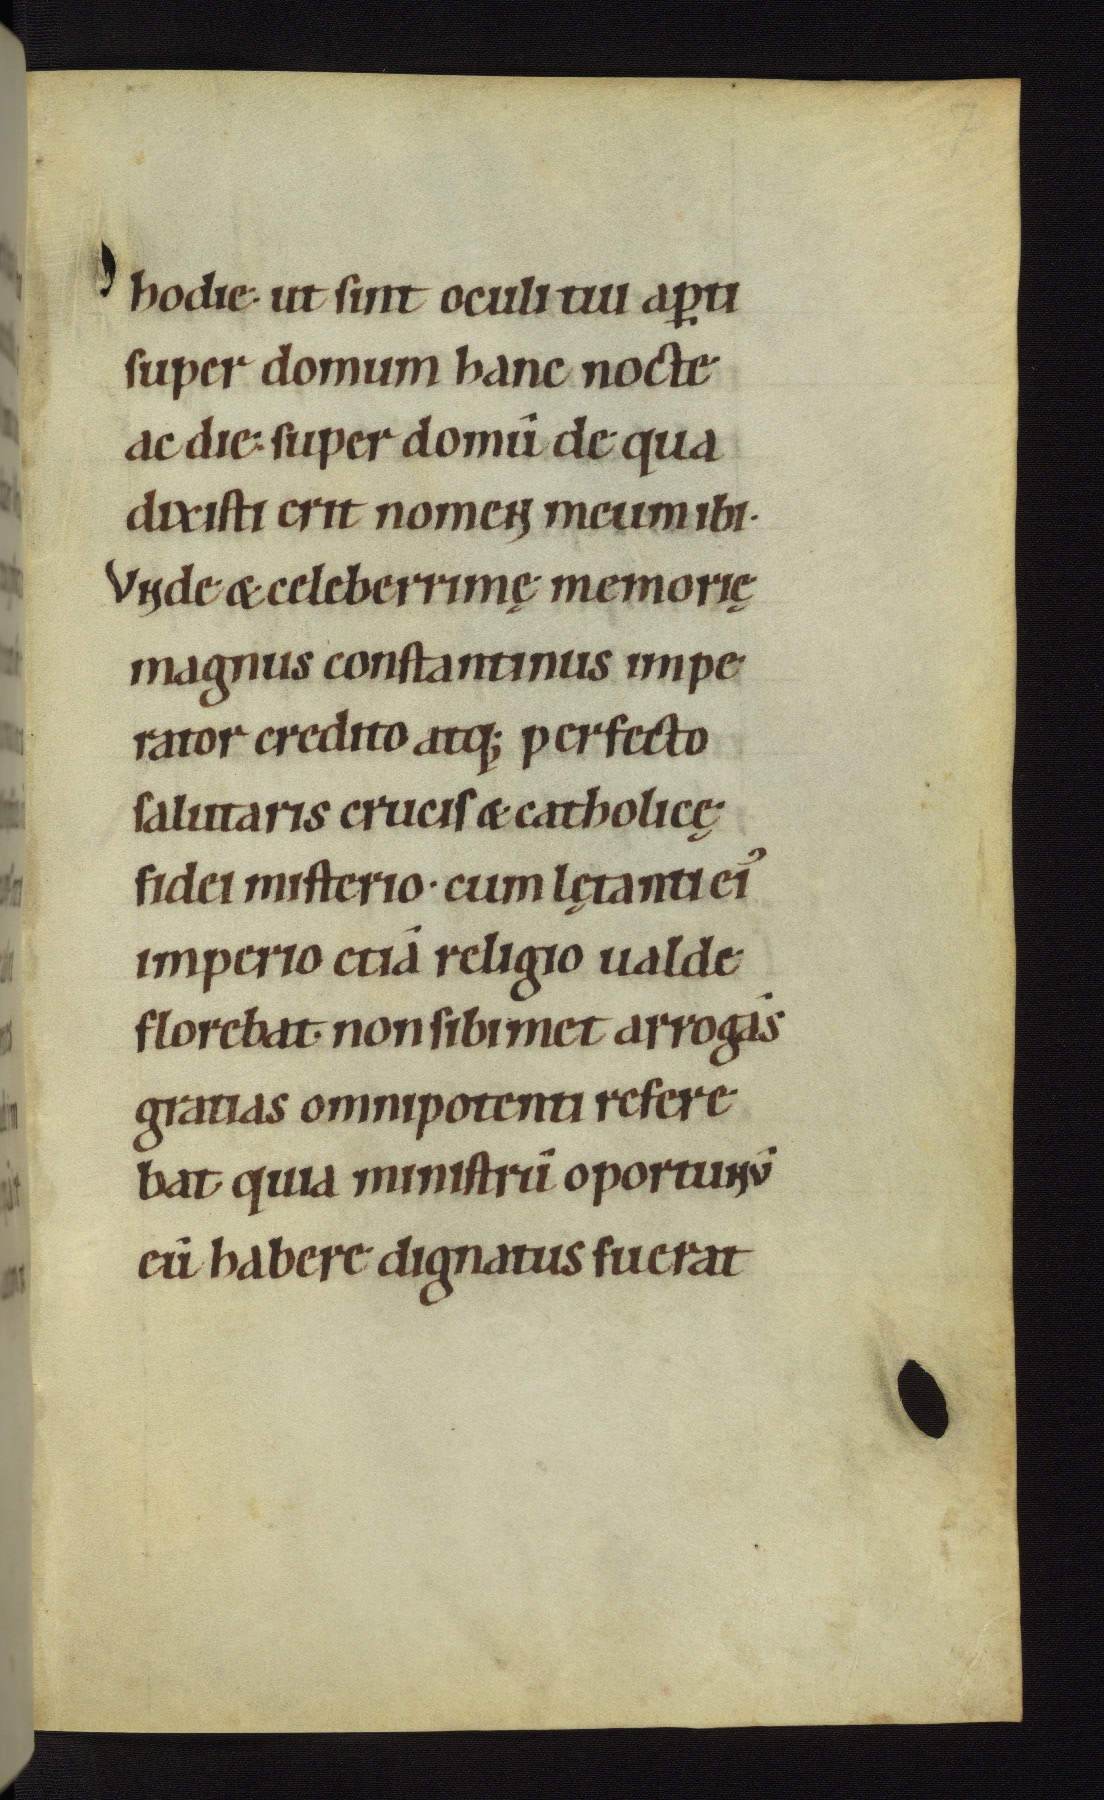 7
hodie· ut sint oculi tui aꝑti
super domum hanc nocte
ac die: super domū de qua
dixisti erit nomen meum ibi·
Vnde & celeberrimę memorię
magnus constantinus impe
rator credito atq; perfecto
salutaris crucis & catholicę
fidei misterio· cum lętanti eiꝰ
imperio etiā religio ualde
florebat· non sibimet arrogās
gratias omnipotenti refere
bat quia ministrū oportunū
eū habere dignatus fuerat